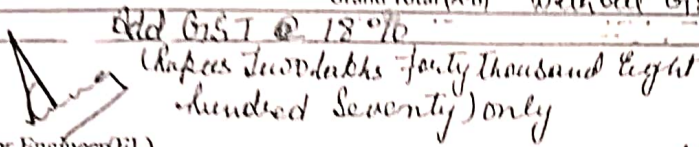 Add GST @ 18%
(Rupees Two lakhs forty thousand Eight
hundred Seventy) only